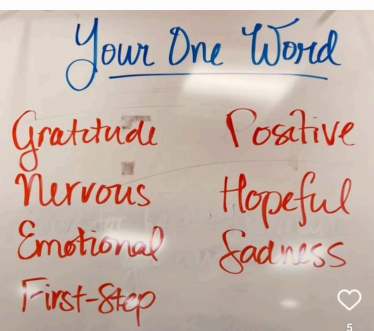 Your One Word
Gratitude
Nervous
Emotional
First-Step
Positive
Hopeful
Sadness
5